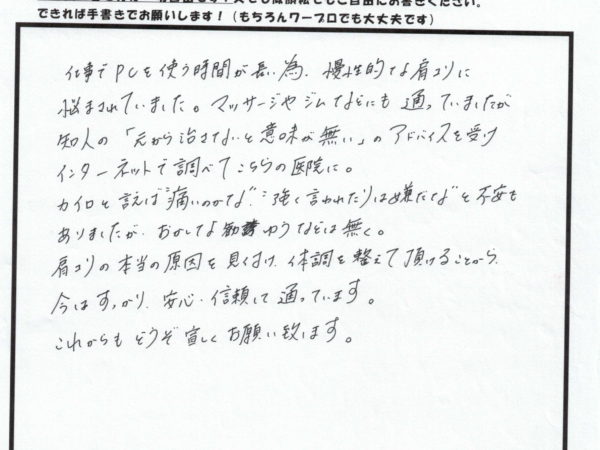 できれば手書きでお願いします！（もちろんワープロでも大丈夫です）
仕事でPCを使う時間が長い為、慢性的な肩コリに
悩まされていました。マッサージやジムなどにも通っていましたが
知人の「元から治さないと意味が無い」のアドバイスを受け
インターネットで調べてこちらの医院に。
カイロと言えば“痛いのかな”“強く言われたりは嫌だな”と不安も
ありましたが、おかしな勧誘ゆうなどは無く。
肩コリの本当の原因を見つけ、体調を整えて頂けることから、
今はすっかり、安心・信頼して通っています。
これからもどうぞ宜しくお願い致します。